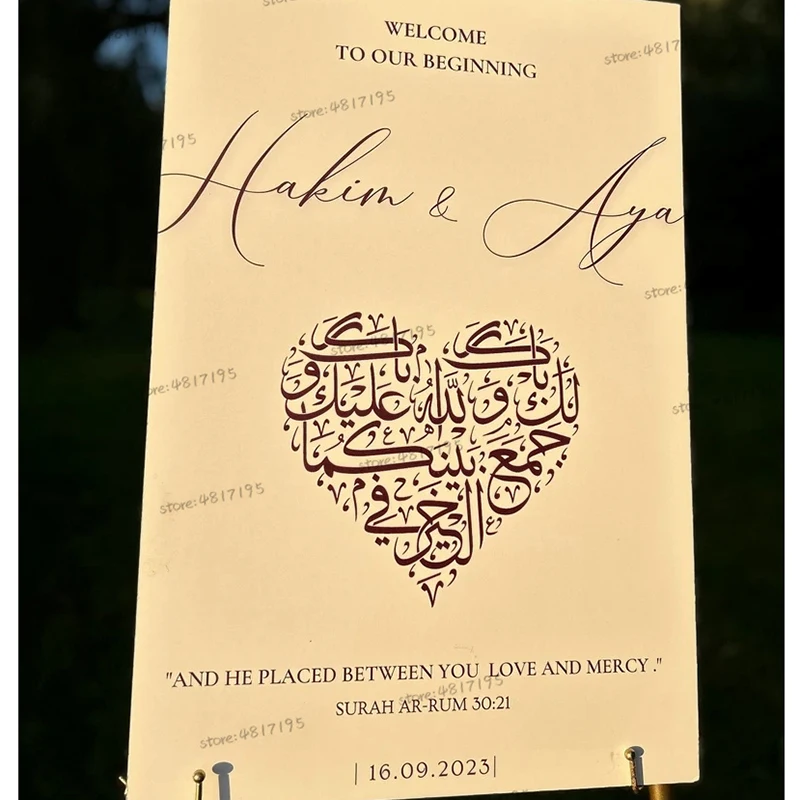 WELCOME
TO OUR BEGINNING
Hakim & Aya
بارك الله لك وبارك عليك وجمع بينكما في الخير
"AND HE PLACED BETWEEN YOU LOVE AND MERCY."
SURAH AR-RUM 30:21
| 16.09.2023|
store:4817195
store:4817195
store:4817195
store:4817195
store:4817195